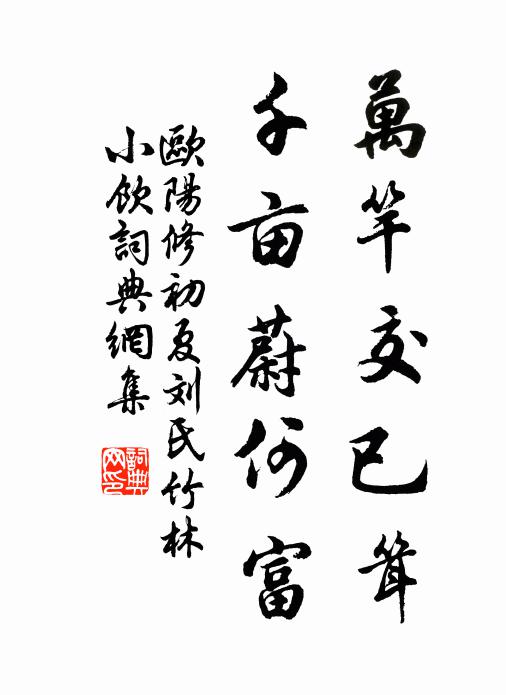 萬竿交已耸
千亩蔚何富
歐陽修初夏刘民竹林
小飲詞典網集
詞典
网印